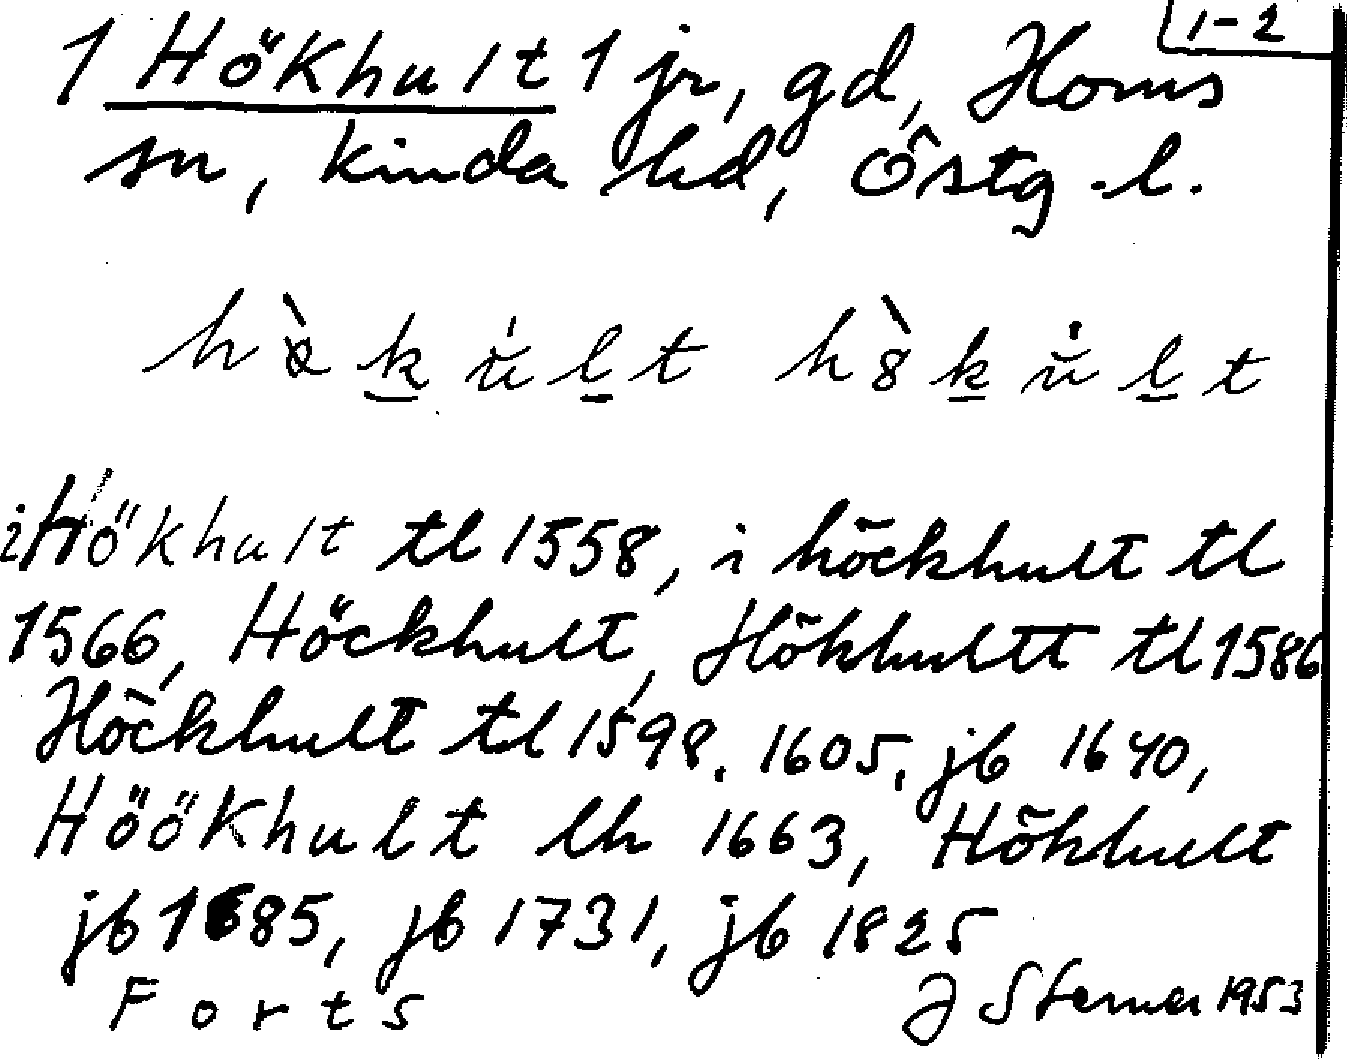 1-2
1 Hökhult 1 jr, gd, Horns
sn, Kinda hd, Östg.l.
i Hökhult tl 1558, i höckhult tl
1566, Höckhult, Hökhultt tl 1586
Höckhult tl 1598, 1605, jb 1640,
Höökhult lh 1663, Hökhult
jb 1685, jb 1731, jb 1825
Forts J Sterner 1953